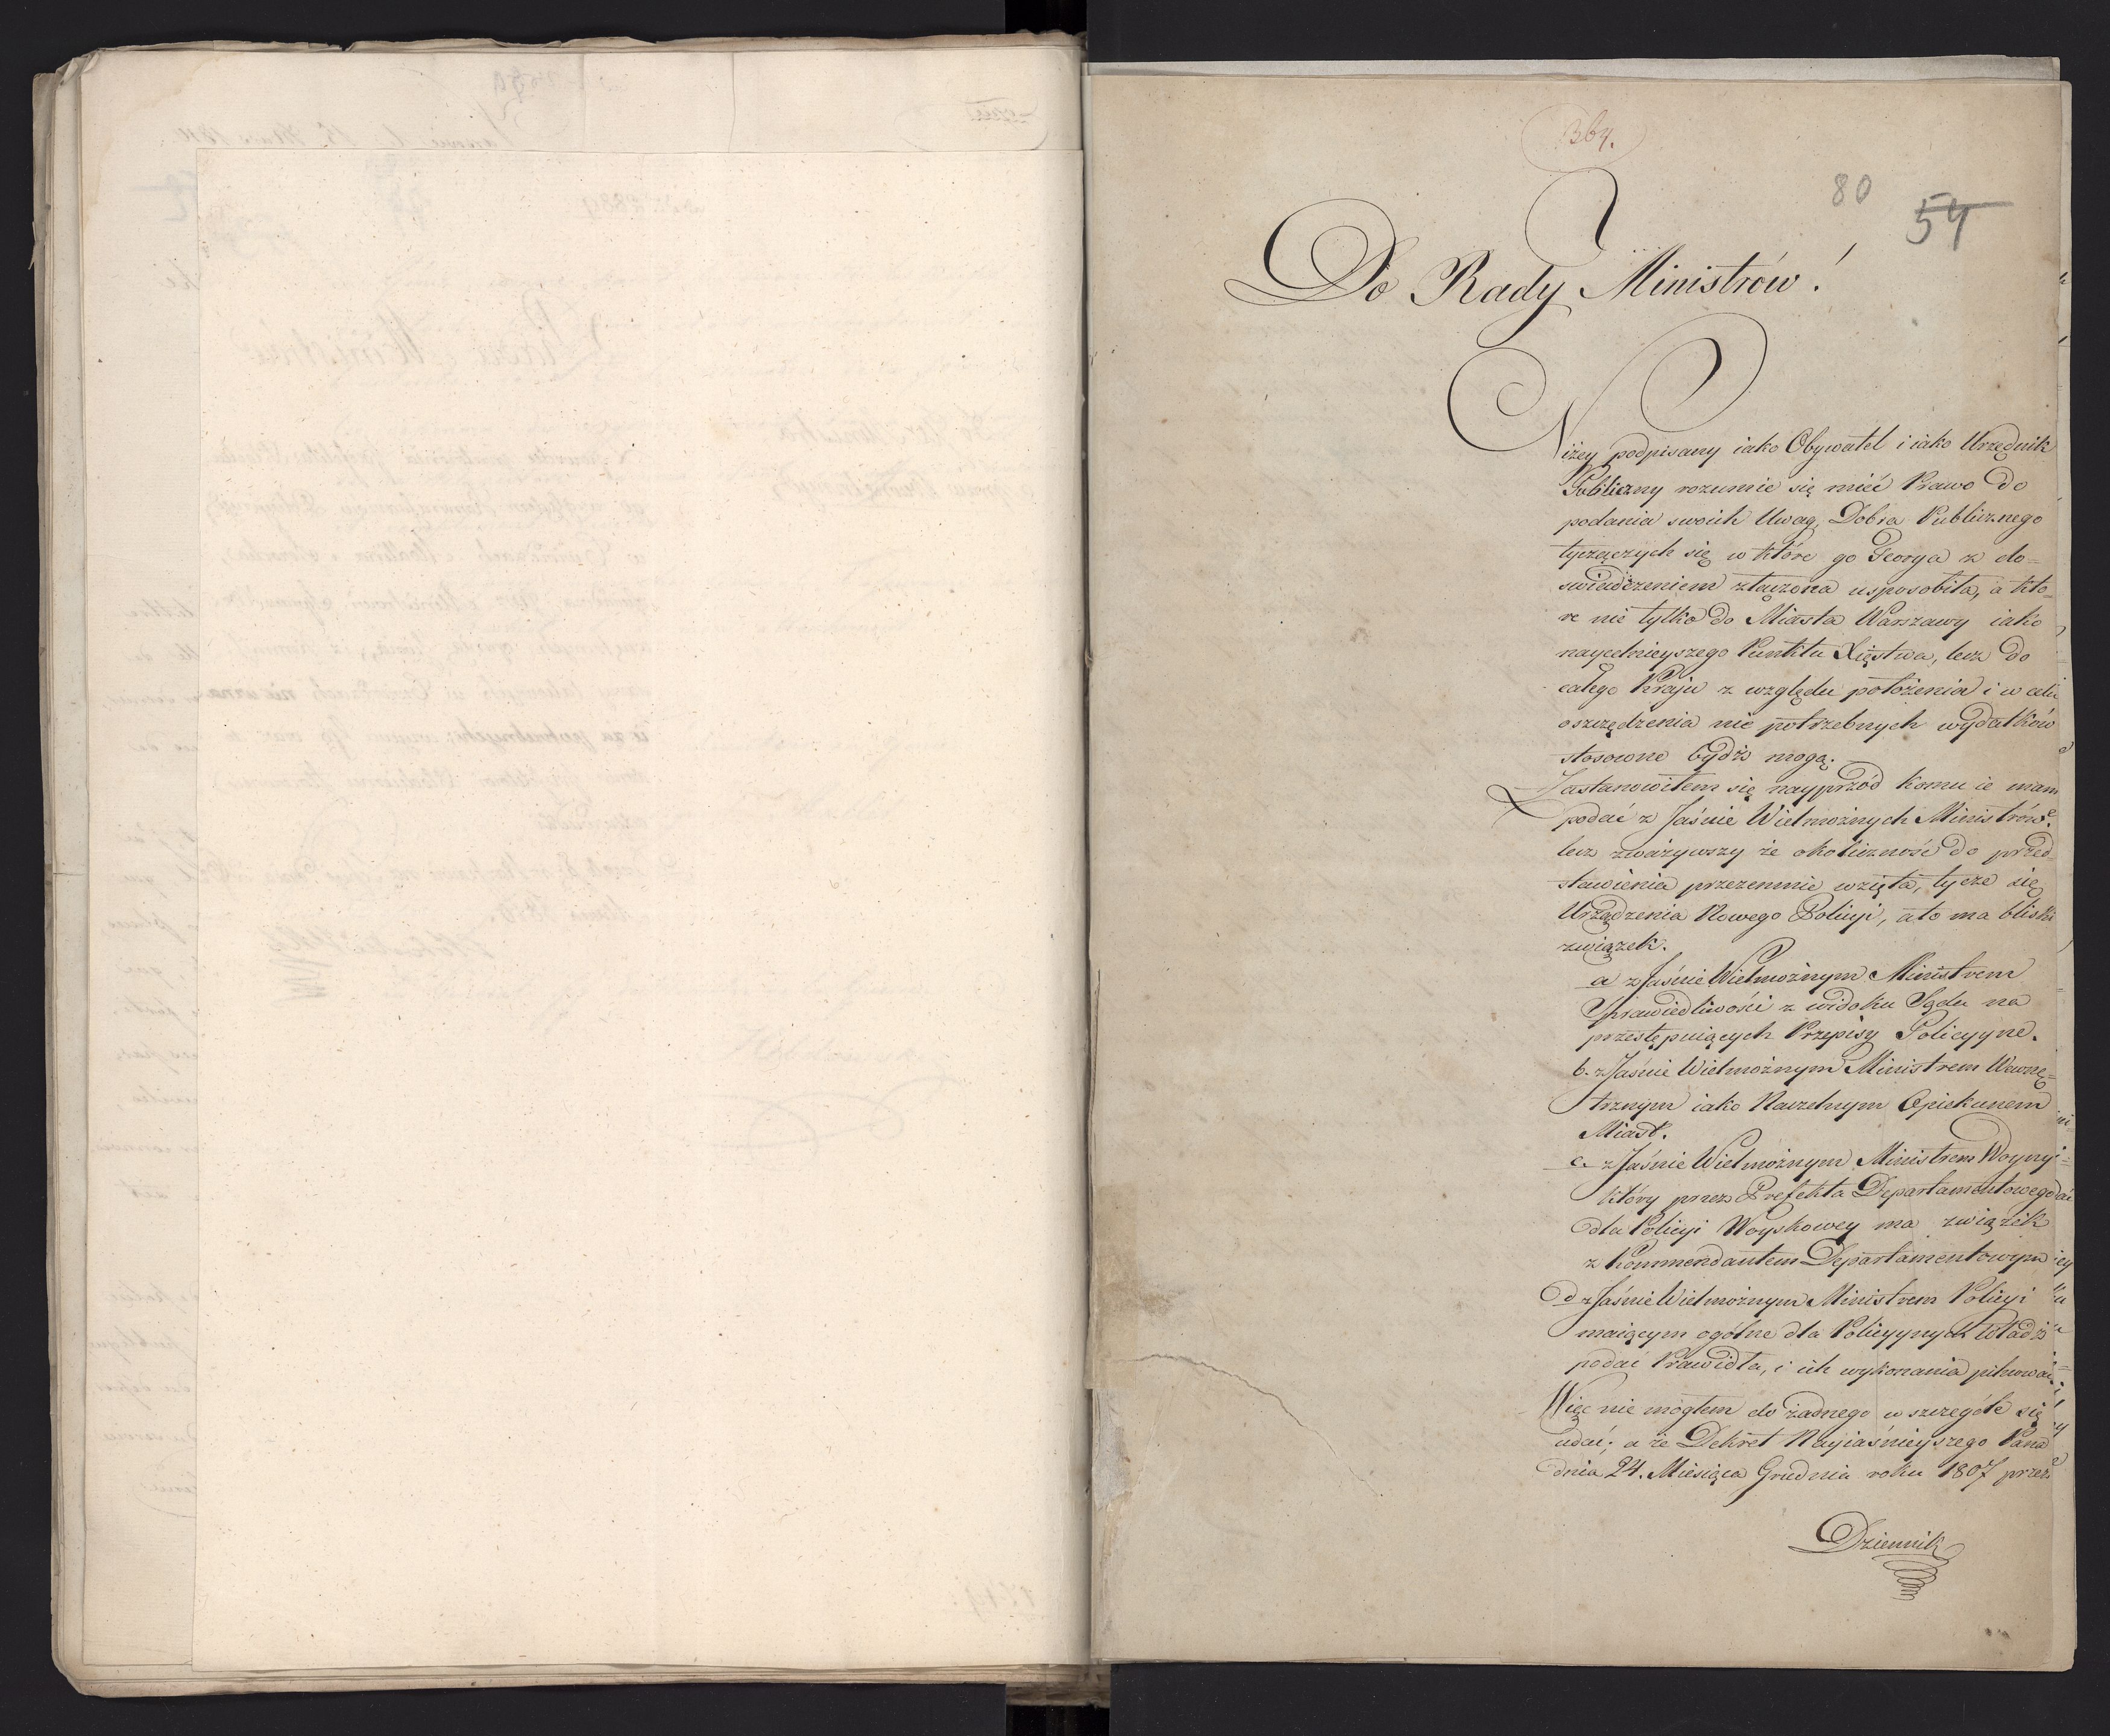 364.
80
54
Do Rady Ministrów!
Niżey podpisany iako Obywatel i iako Urzędnik
Publiczny rozumie się mieć Prawo do
podania swoich Uwag, Dobra Publicznego
tyczących się w które go Teorya z do=
swiadczeniem złączona usposobiła, a któ=
re nie tylko do Miasta Warszawy iako
naycelnieyszego Punktu Xięstwa, lecz do
całego Kraju z względu położenia i w celu
oszczędzenia nie potrzebnych wydatków
stosowne bydź mogą.
Zastanowiłem się nayprzód komu ie mam
podać z Jaśnie Wielmożnych Ministrów.
lecz zważywszy że okoliczność do przed=
stawienia przezemnie wzięta, tycze się
Urządzenia Nowego Policyi, a to ma bliski
związek.
a z Jaśnie Wielmożnym Ministrem
Sprawiedliwości z widoku Sądu na
przestępuiących Przepisy Policyyne.
b. z Jaśnie Wielmożnym Ministrem Wewnę=
trznym iako Naczelnym Opiekunem
Miast.
c. z Jaśnie Wielmożnym Ministrem Woyny
który przez Prefekta Departamentowego
dla Policyi Woyskowey ma związek
z Kommendantem Departamentowym
d z Jaśnie Wielmożnym Ministrem Policyi
maiącym ogólne dla Policyynych Władz
podać Prawidła, i ich wykonania pilnować.
Więc nie mogłem do żadnego w szczególe się
udać; a że Dekret Nayiaśnieyszego Pana
dnia 24. Miesiąca Grudnia roku 1807 przez
Dziennik